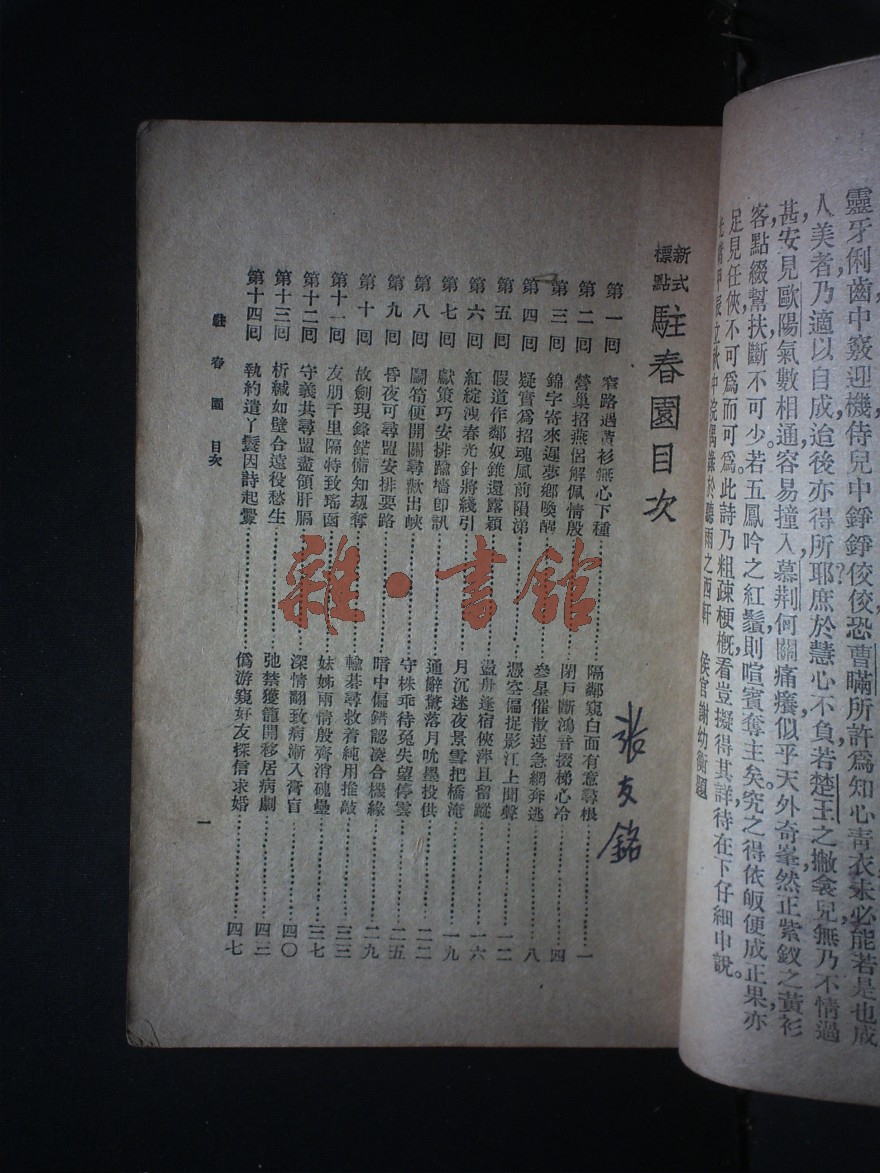 靈牙俐齒中竅迎機侍兒中錚錚佼佼恐曹瞞所許爲知心青衣未必能若是也成
人美者乃適以自成迨後亦得所耶庶於慧心不負若楚王之撇衾兒無乃不情過
甚安見歐陽氣數相通容易撞入慕荆何關痛癢似乎天外奇峯然正紫釵之黃衫
客點綴幫扶斷不可少若五鳳吟之紅鬚則喧賓奪主矣究之得依皈便成正果亦
足見任俠不可爲而可爲此詩乃粗疎梗槪看豈擬得其詳待在下仔細申說。
立秋中浣偶識於聽雨之西軒 侯官謝幼衡題
新式標點 駐春園目次
第一回 窄路遇青衫無心下種 隔鄰窺白面有意尋根 一
第二回 營巢招燕侶解佩情殷 閉戶斷鴻音掇梯心冷 四
第三回 錦字寄來遲夢鄉喚醒 參星催散速急網奔逃 八
第四回 疑實爲招魂風前隕涕 憑空偏捉影江上聞聲 一二
第五回 假道作鄰奴錐還露穎 盪舟逢宿俠萍且留蹤 一六
第六回 紅綻洩春光針將綫引 月沉迷夜景雪把橋淹 一九
第七回 獻策巧安排踰墻卽訊 通辭驚落月吮墨投供 二二
第八回 鬬筍便開關尋歡出峽 守株乖待兔失望停雲 二五
第九回 昏夜可尋盟安排要路 暗中偏錯認凑合機緣 二九
第十回 故劍現鋒鋩備知刼奪 輸碁尋救着純用推敲 三三
第十一回 友朋千里隔特致瑤函 妹姊兩情殷齊消磈壘 三七
第十二回 守義共尋盟盡領肝膈 深情翻致病漸入膏盲 四〇
第十三回 析緘如壁合遠役愁生 弛禁獲籠開移居病劇 四三
第十四回 執約遣丫鬟因詩起釁 僞游窺好友探信求婚 四七
駐春園 目次
一
張友銘
雜·書館